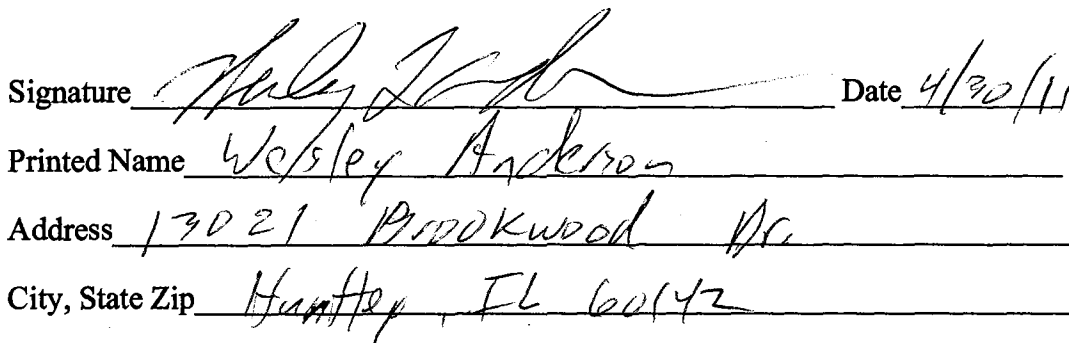 Signature Date 4/30/11
Printed Name Wesley Anderson
Address 13021 Brookwood Dr.
City, State Zip Huntley, IL 60142